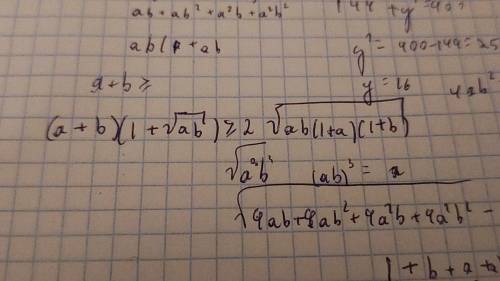 ab + ab² + a²b + a²b²
144 + y² = 400
ab(1 + ab
y² = 400 - 144 = 25
a + b ≥
y = 16
4ab²
(a + b)(1 + √ab) ≥ 2 √ab(1+a)(1+b)
(ab)³ =
√4ab + 4ab² + 4a²b + 4a²b² -
1 + b + a +